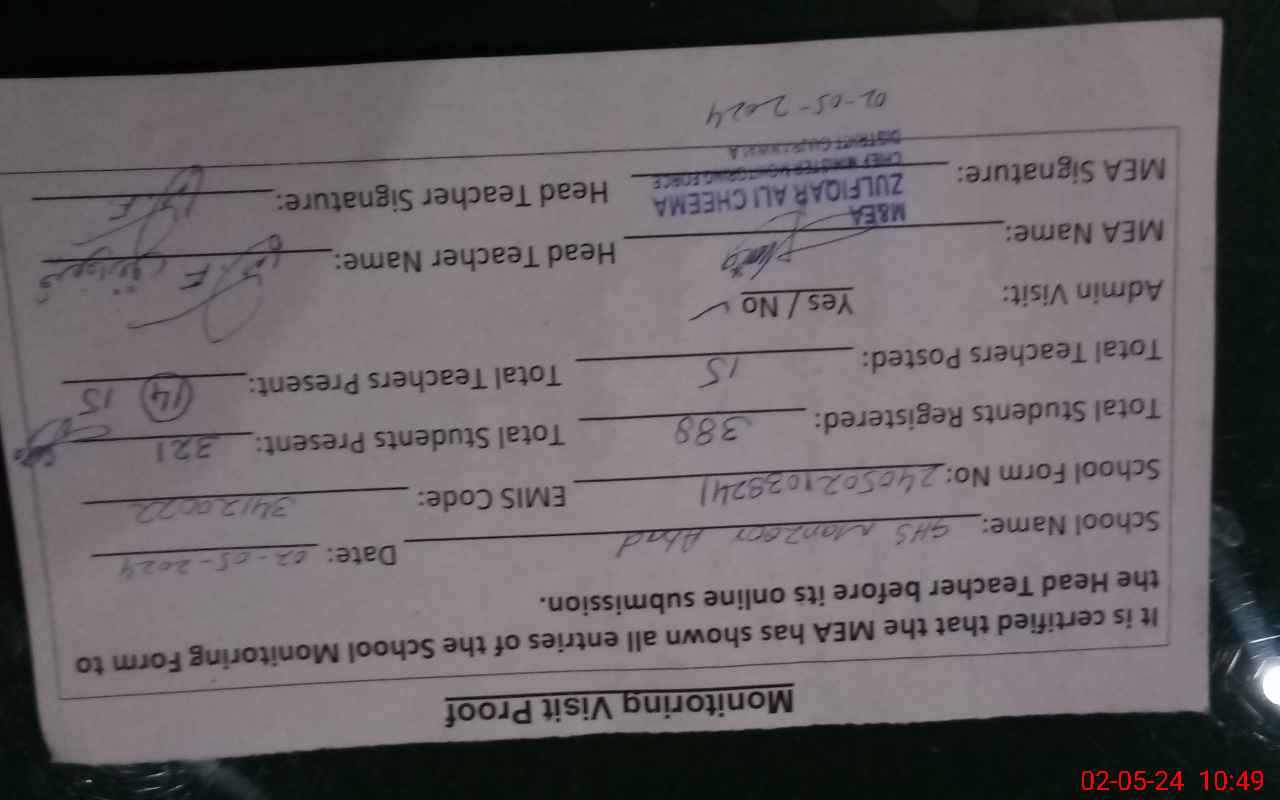 Monitoring Visit Proof
It is certified that the MEA has shown all entries of the School Monitoring Form to
the Head Teacher before its online submission.
School Name: GHS Manzoor Abad Date: 02-05-2024
School Form No: EMIS Code: 34120022
Total Students Registered: 388 Total Students Present: 321
Total Teachers Posted: 15 Total Teachers Present: 14 15
Admin Visit: Yes / No
MEA Name: Head Teacher Name:
M&EA
ZULFIQAR ALI CHEEMA
CHIEF MINISTER MONITORING FORCE
DISTRICT GUJRANWALA
MEA Signature: Head Teacher Signature:
02-05-2024
02-05-24 10:49